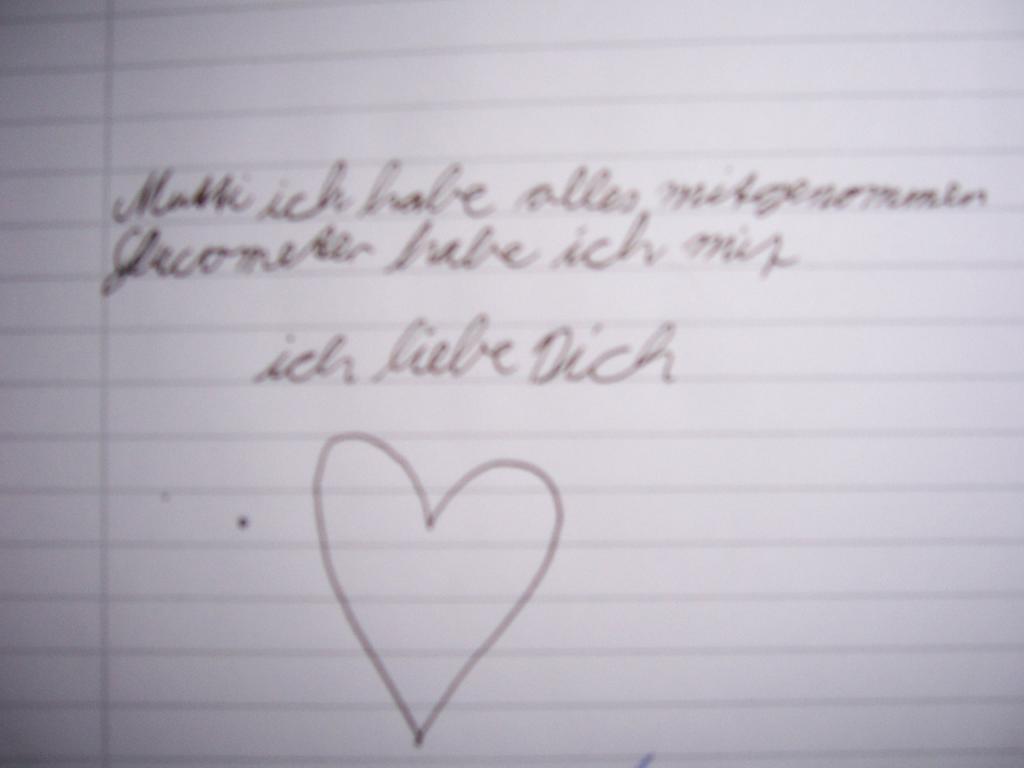 Mutti ich habe alles mitgenommen
Glucometer habe ich mit
ich liebe Dich